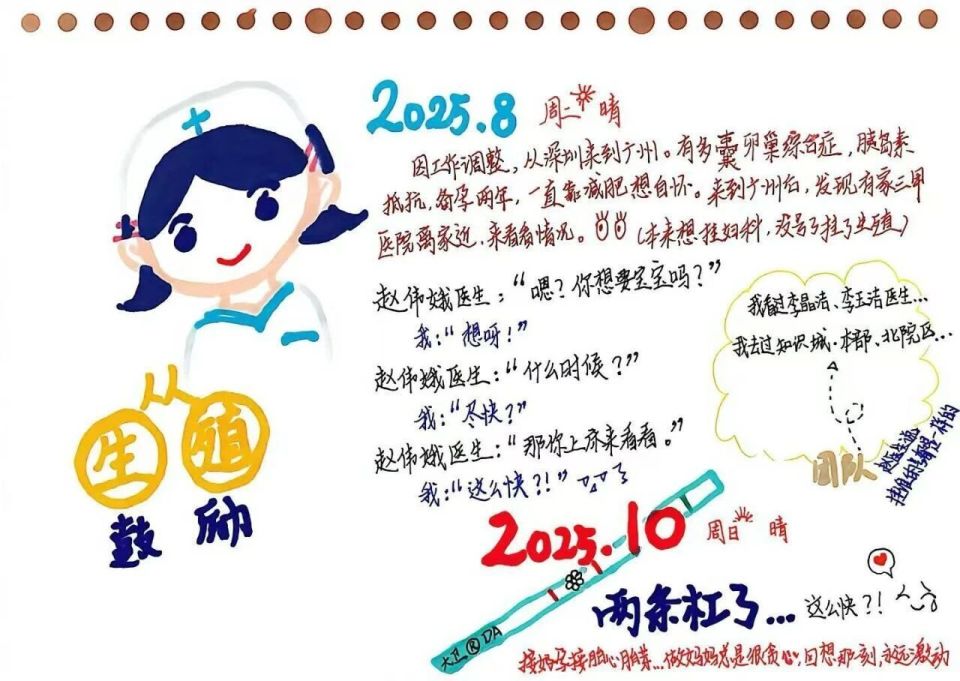 2025.8 周二 晴
因工作调整,从深圳来到广州。有多囊卵巢综合症,胰岛素
抵抗,备孕两年,一直靠减肥想自怀。来到广州后,发现有家三甲
医院离家近,来看看情况。(本来想挂妇科,没号了挂了生殖)
赵伟娥医生:“嗯?你想要宝宝吗?”
我:“想呀!”
赵伟娥医生:“什么时候?”
我:“尽快?”
赵伟娥医生:“那你上床来看看。”
我:“这么快?!”
我看过李晶洁、李玉洁医生...
我去过知识城·本部、北院区...
团队
赵医生说
挂谁的号都是一样的
从
生殖
鼓励
2025.10 周日 晴
大卫®DA
两条杠了... 这么快?!
接好孕接胎心胎芽...做妈妈总是很贪心,回想那刻,永远激动